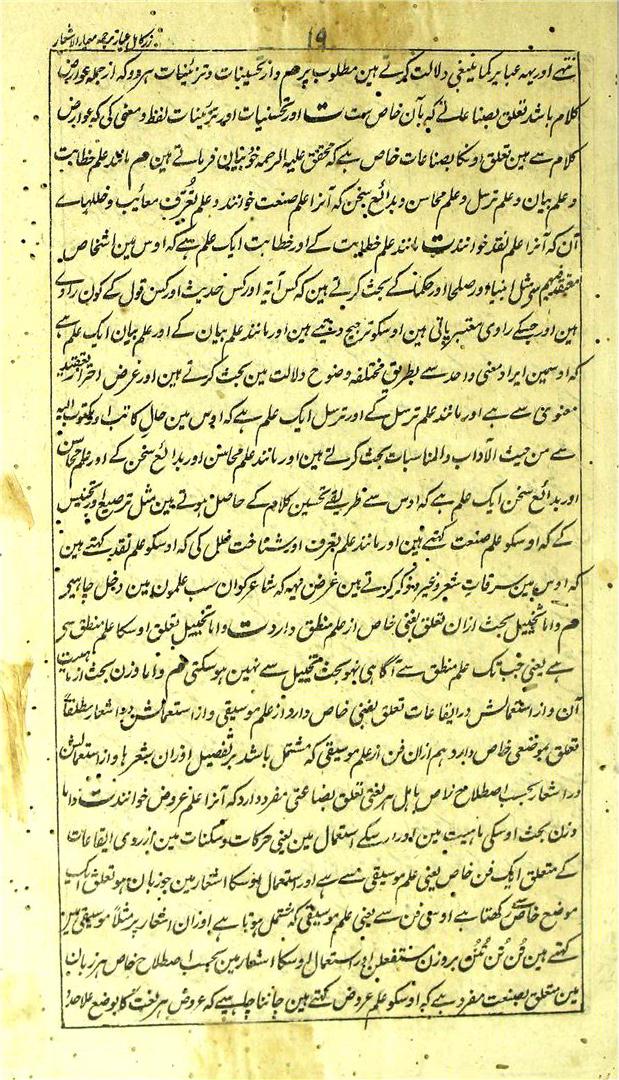 زر کامل عیار ترجمہ معیار الاشعار
۱۹
تھے اور یہہ عبایر کما ینبغی دلالت کرتے ہین مطلوب پر ھم و از تحسینات و تزئینات ہر دو کہ از جملہ عوارض
کلام باشد تعلق بصناعاتے کہ بآن خاص ست ت اور تحسینات اور تزئینات لفظ و معنی کی کہ عوارض
کلام سے ہین تعلق اونکا بصناعات خاص ہے کہ محقق علیہ الرحمہ خود بیان فرماتے ہین ھم مانند علم خطابت
و علم بیان و علم ترسل و علم محاسن و بدائع سخن کہ آنرا علم صنعت خوانند و علم تعرف معائب و خللہاے
آن کہ آنرا علم نقد خوانند ت مانند علم خطابت کے اور خطابت ایک علم ہے کہ اوس مین اشخاص
مثل انبیا اور صلحا اور حکما کے بحث کرتے ہین کہ کس آیہ اور کس حدیث اور کس قول کے کون راوی
ہین اور جسکے راوی معتبر پاتی ہین اوسکو ترجیح دیتے ہین اور مانند علم بیان کے اور علم بیان ایک علم ہے
کہ اوسمین ایراد معنی واحد سے بطریق مختلفہ وضوح دلالت مین بحث کرتے ہین اور غرض احتراز بتعقید
معنوی سے ہے اور مانند علم ترسل کے اور ترسل ایک علم ہے کہ اوس مین حال کاتب اور مکتوب الیہ
سے من حیث الآداب والمناسبات بحث کرتے ہین اور مانند علم محاسن اور بدائع سخن کے اور علم محاسن
اور بدائع سخن ایک علم ہے کہ اوس سے طریقے تحسین کلام کے حاصل ہوتے ہین مثل ترصیع اور تجنیس
کے کہ اوسکو علم صنعت کہتے ہین اور مانند علم تعرف اور شناخت خلل کی کہ اوسکو علم نقد کہتے ہین
کہ اوس مین سرقات شعر وغیرہ مذکور کرتے ہین غرض یہہ کہ شاعر کو ان سب علمون مین دخل چاہیے
ھم واما تخییل بحث ازان تعلق بفنی خاص از علم منطق دارد ت واما تخییل تعلق اوسکا علم منطق ہی
ہے یعنی جب تک علم منطق سے آگاہی نہو بحث تخییل سے نہین ہو سکتی ھم واما وزن بحث از ماہیت
آن و از استعمالش در ایقاعات تعلق بفنی خاص دارد از علم موسیقی و از استعمالش در اشعار مطلقاً
تعلق بموضعی خاص دارد ہم ازان فن از علم موسیقی کہ مشتمل باشد بر تفصیل اوزان شعرہا و از استعمالش
در اشعار بحسب اصطلاح خاص باہل ہر لغتی تعلق بصناعتی مفرد دارد کہ آنرا علم عروض خوانند ت واما
وزن بحث اوسکی ماہیت مین اور اوسکے استعمال مین یعنی حرکات و سکنات مین از روی ایقاعات
کے متعلق ایک فن خاص یعنی علم موسیقی سے ہے اور استعمال اوسکا اشعار مین جو زبان ہو تعلق ایک
موضع خاص سے رکھتا ہے اوسی فن سے یعنی علم موسیقی کہ مشتمل ہوتا ہے اوزان اشعار پر مثلاً موسیقی مین
کہتے ہین تن تن تنن بر وزن مستفعلن اور استعمال اوسکا اشعار مین بحسب اصطلاح خاص ہر زبان
مین متعلق بصنعت مفرد ہے کہ اوسکو علم عروض کہتے ہین جاننا چاہیے کہ عروض ہر لغت کا بوضع علاحدہ